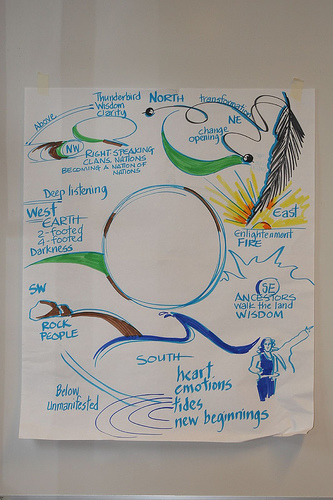 Above
Thunderbird
Wisdom
Clarity
NORTH
transformation
NE
change
opening
NW
RIGHT SPEAKING
CLANS. NATIONS
BECOMING A NATION OF
NATIONS
East
Enlightenment
FIRE
Deep listening
West
EARTH
2-footed
4-footed
Darkness
SE
ANCESTORS
walk the land
WISDOM
SW
ROCK
PEOPLE
SOUTH
heart
emotions
tides
new beginnings
Below
Unmanifested